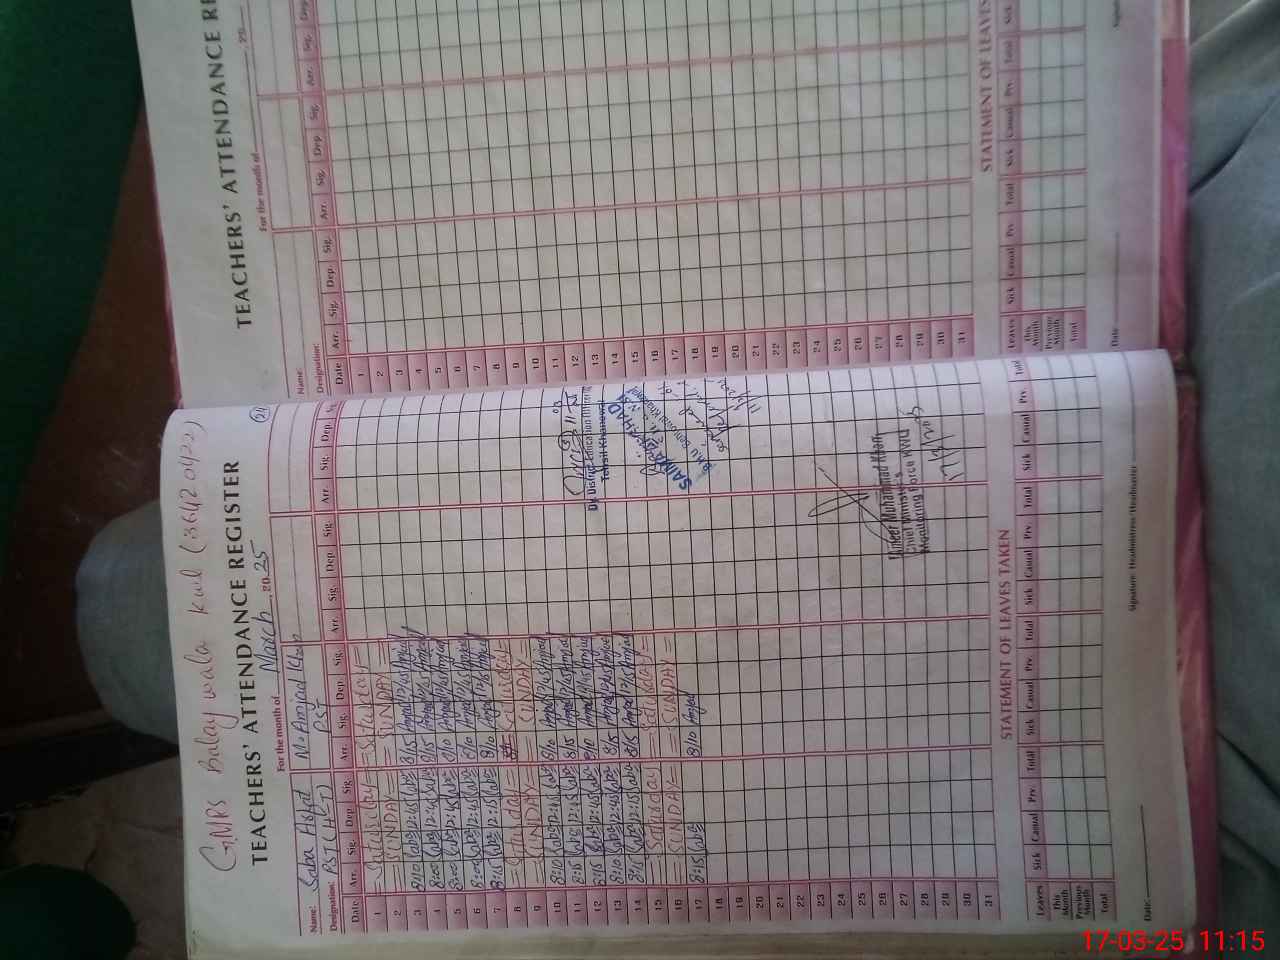 GMPS Balay wala kwl (36420422)
TEACHERS' ATTENDANCE REGISTER
24
For the month of March, 2025
Name: Saba Asfat M. Amjad Khan
Designation: PST (H-T) PST
Date Arr. Sig. Dep. Sig. Arr. Sig. Dep. Sig. Arr. Sig. Dep. Sig. Arr. Sig. Dep. Sig.
1 = Saturday = = Saturday =
2 = SUNDAY = = SUNDAY =
3 8:10 Saba 12:45 Saba 8/15 Amjad 12/45 Amjad
4 8:05 Saba 12:45 Saba 8/15 Amjad 12/45 Amjad
5 Saba 12:45 Saba 8/10 Amjad 12/45 Amjad
6 8:05 Saba 12:45 Saba 8/10 Amjad 12/45 Amjad
7 8:15 Saba 12:15 Saba 8/10 Amjad 12/15 Amjad
8 = Saturday = = Saturday =
9 = SUNDAY = = SUNDAY =
10 8:10 Saba 12:45 Saba 8/10 Amjad 12/45 Amjad
11 8:15 Saba 12:45 Saba 8/15 Amjad 12/45 Amjad
12 8:15 Saba 12:45 Saba 8/10 Amjad 12/45 Amjad
13 8:10 Saba 12:45 Saba 8/15 Amjad 12/45 Amjad
14 8:15 Saba 12:15 Saba 8/15 Amjad 12/15 Amjad
15 = Saturday = = Saturday =
16 = SUNDAY = = SUNDAY =
17 8:15 Saba 8/10 Amjad
18
19
20
21
22
23
24
25
26
27
28
29
30
31
Dy. District Education Officer
Tehsil Khanewal
SAIMA
11/3/2025
Muneer Muhammad Khan
Chief Minister's
Monitoring Force KWL
17/3/2025
STATEMENT OF LEAVES TAKEN
Leaves Sick Casual Prv. Total Sick Casual Prv. Total Sick Casual Prv. Total Sick Casual Prv. Total
This Month
Previous Month
Total
Date:
Signature: Headmistress/Headmaster
TEACHERS' ATTENDANCE RE
For the month of , 20
Name:
Designation:
Date Arr. Sig. Dep. Sig. Arr. Sig. Dep. Sig. Arr. Sig. Dep.
1
2
3
4
5
6
7
8
9
10
11
12
13
14
15
16
17
18
19
20
21
22
23
24
25
26
27
28
29
30
31
STATEMENT OF LEAVES
Leaves Sick Casual Prv. Total Sick Casual Prv. Total Sick
This Month
Previous Month
Total
Date
17-03-25 11:15